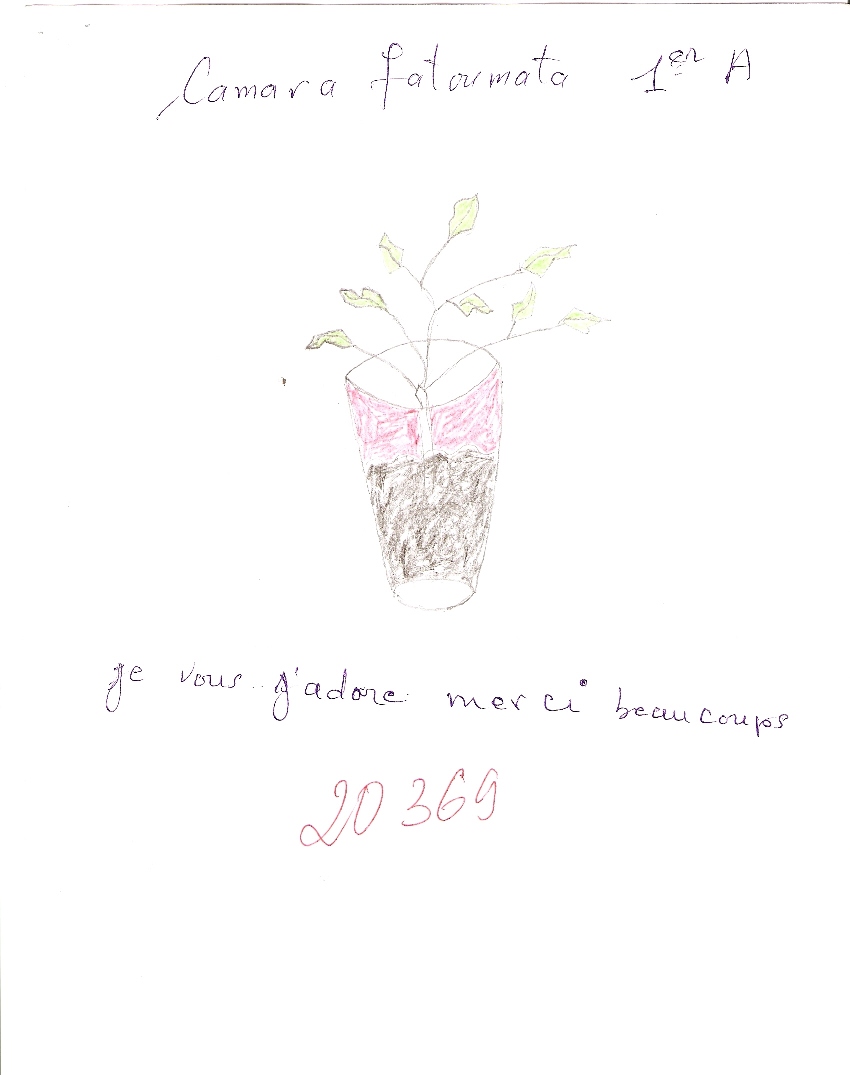 Camara fatoumata 1er A
je vous j'adore merci beaucoups
20369